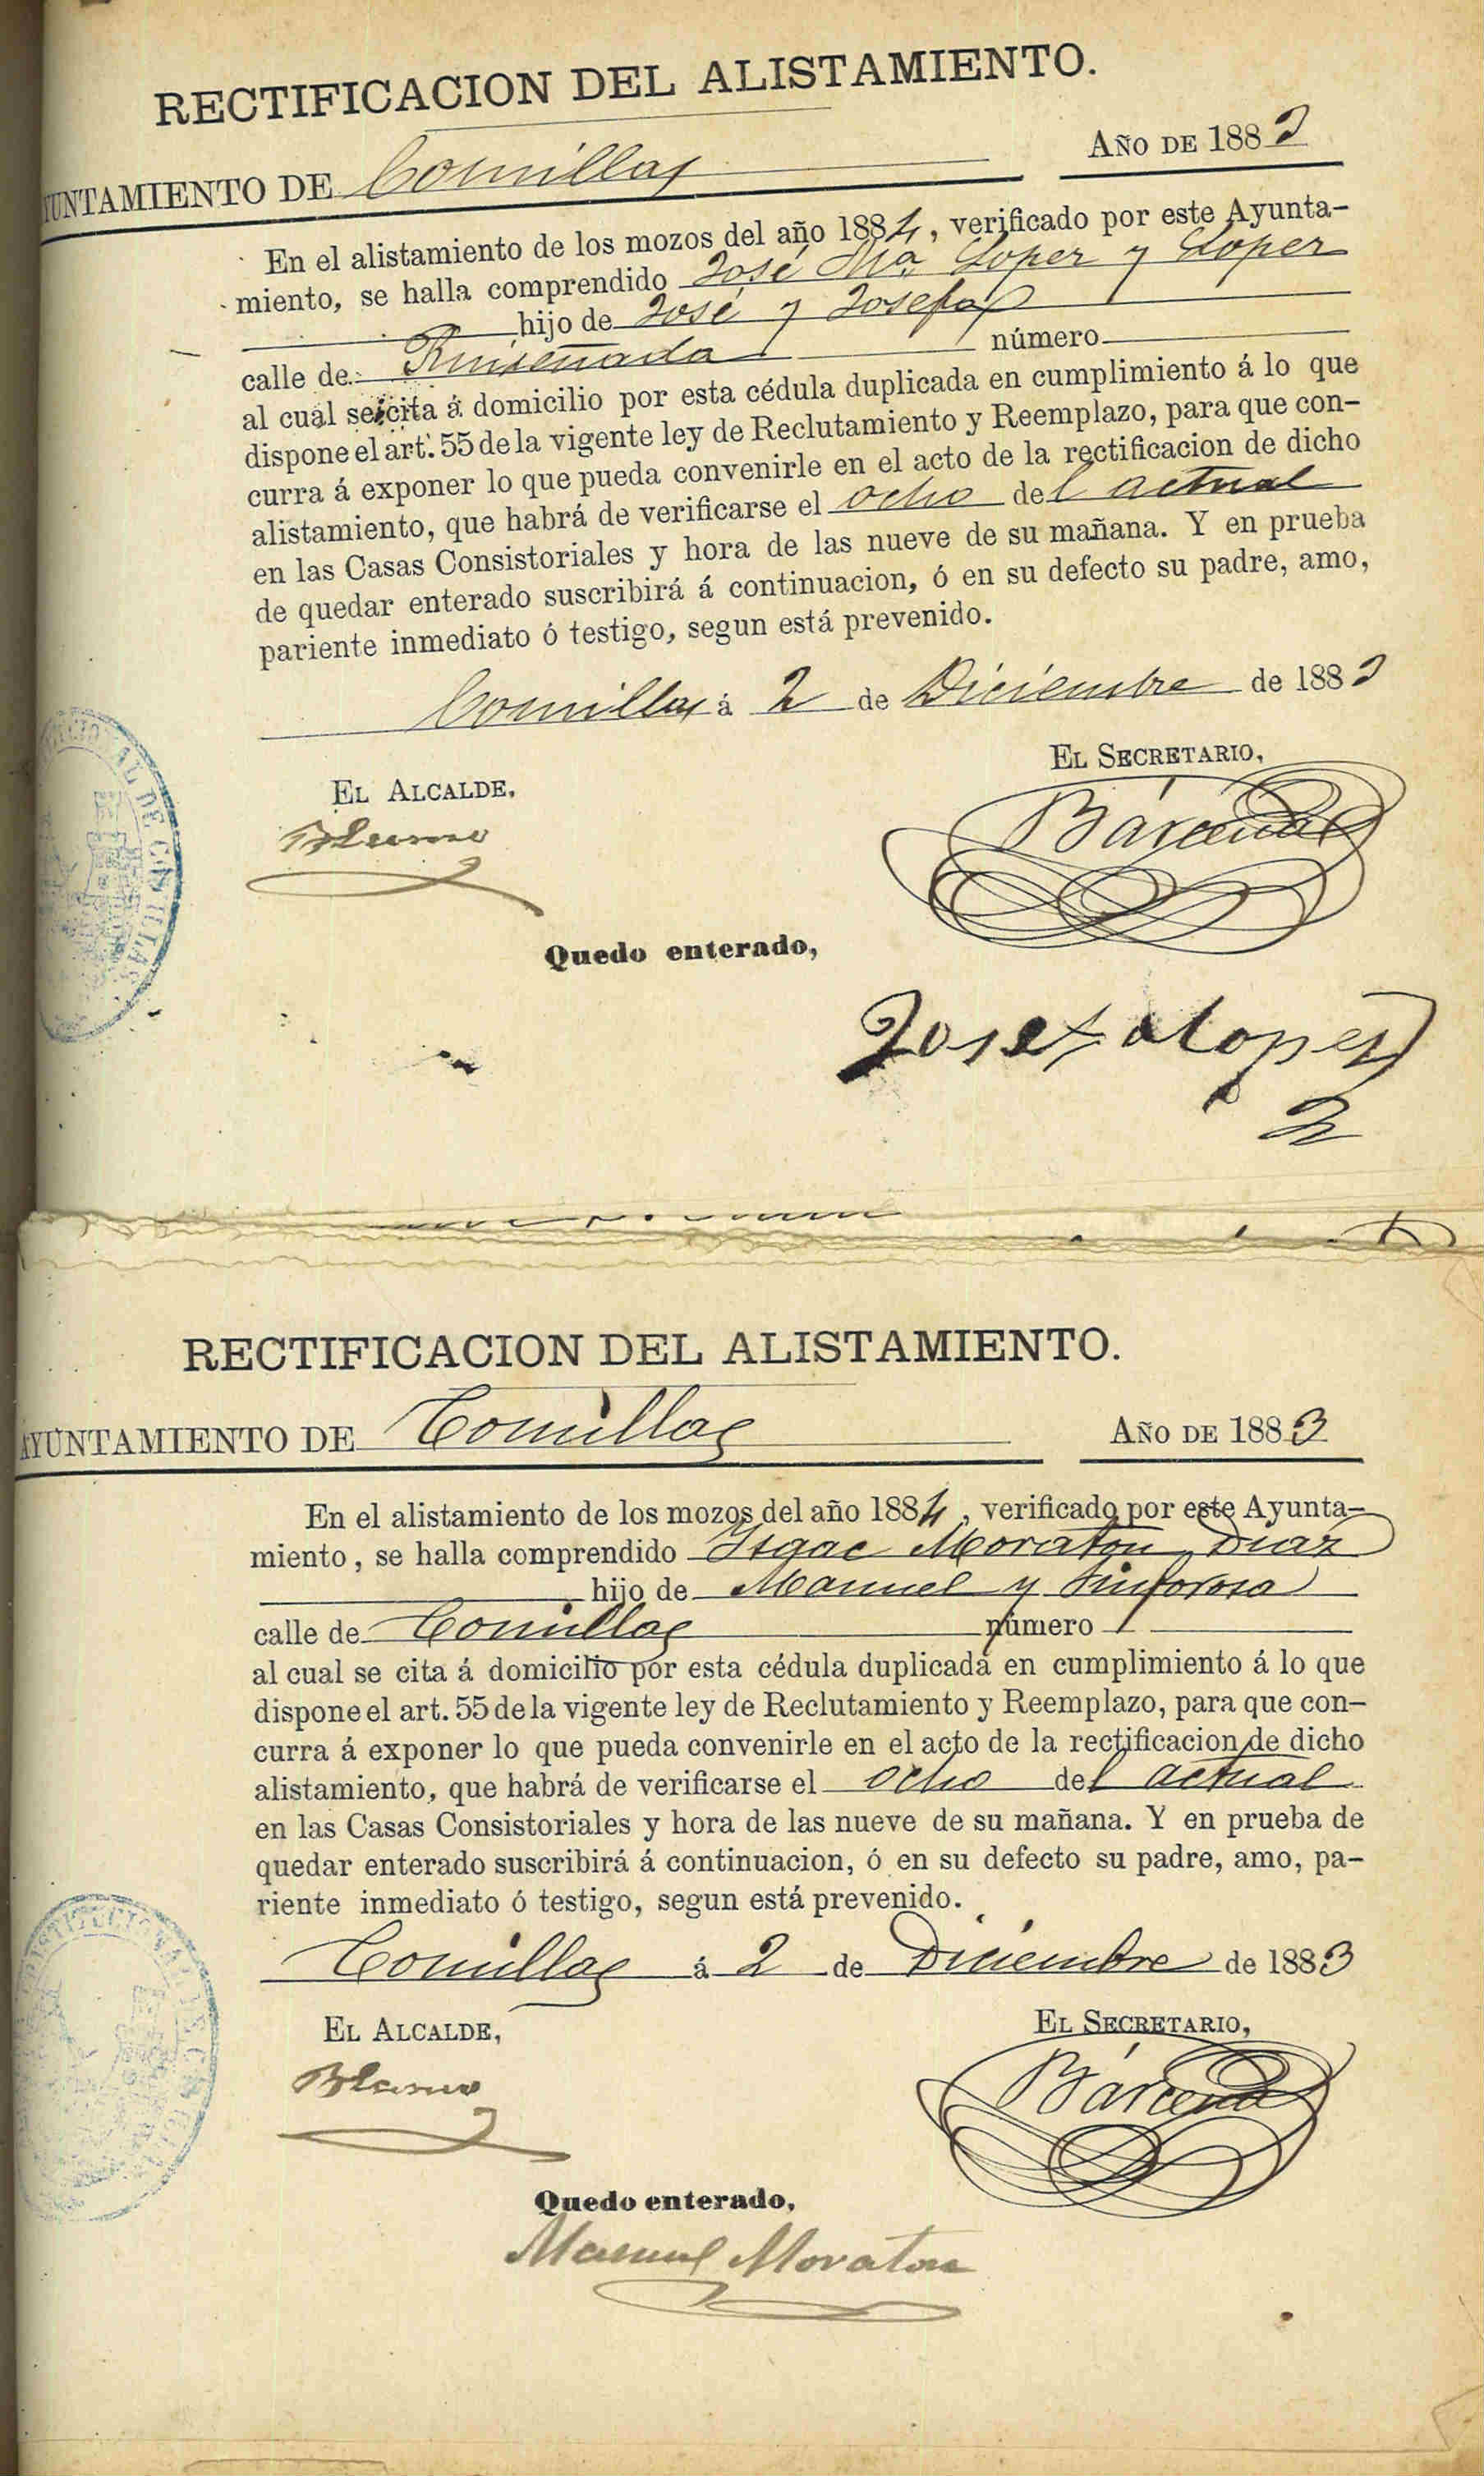 RECTIFICACION DEL ALISTAMIENTO.
AYUNTAMIENTO DE Comillas AÑO DE 1883
En el alistamiento de los mozos del año 1884, verificado por este Ayunta-
miento, se halla comprendido José Ma. Lopez y Lopez
hijo de José y Josefa
calle de Ruiseñada número
al cual se cita á domicilio por esta cédula duplicada en cumplimiento á lo que
dispone el art. 55 de la vigente ley de Reclutamiento y Reemplazo, para que con-
curra á exponer lo que pueda convenirle en el acto de la rectificacion de dicho
alistamiento, que habrá de verificarse el ocho del actual
en las Casas Consistoriales y hora de las nueve de su mañana. Y en prueba
de quedar enterado suscribirá á continuacion, ó en su defecto su padre, amo,
pariente inmediato ó testigo, segun está prevenido.
Comillas á 2 de Diciembre de 1883
EL ALCALDE. EL SECRETARIO,
Blanco Bárcena
Quedo enterado,
Josefa Lopez
RECTIFICACION DEL ALISTAMIENTO.
AYUNTAMIENTO DE Comillas AÑO DE 1883
En el alistamiento de los mozos del año 1884, verificado por este Ayunta-
miento, se halla comprendido Isaac Moraton Diaz
hijo de Manuel y Sinforosa
calle de Comillas número
al cual se cita á domicilio por esta cédula duplicada en cumplimiento á lo que
dispone el art. 55 de la vigente ley de Reclutamiento y Reemplazo, para que con-
curra á exponer lo que pueda convenirle en el acto de la rectificacion de dicho
alistamiento, que habrá de verificarse el ocho del actual
en las Casas Consistoriales y hora de las nueve de su mañana. Y en prueba de
quedar enterado suscribirá á continuacion, ó en su defecto su padre, amo, pa-
riente inmediato ó testigo, segun está prevenido.
Comillas á 2 de Diciembre de 1883
EL ALCALDE, EL SECRETARIO,
Blanco Bárcena
Quedo enterado,
Manuel Moraton